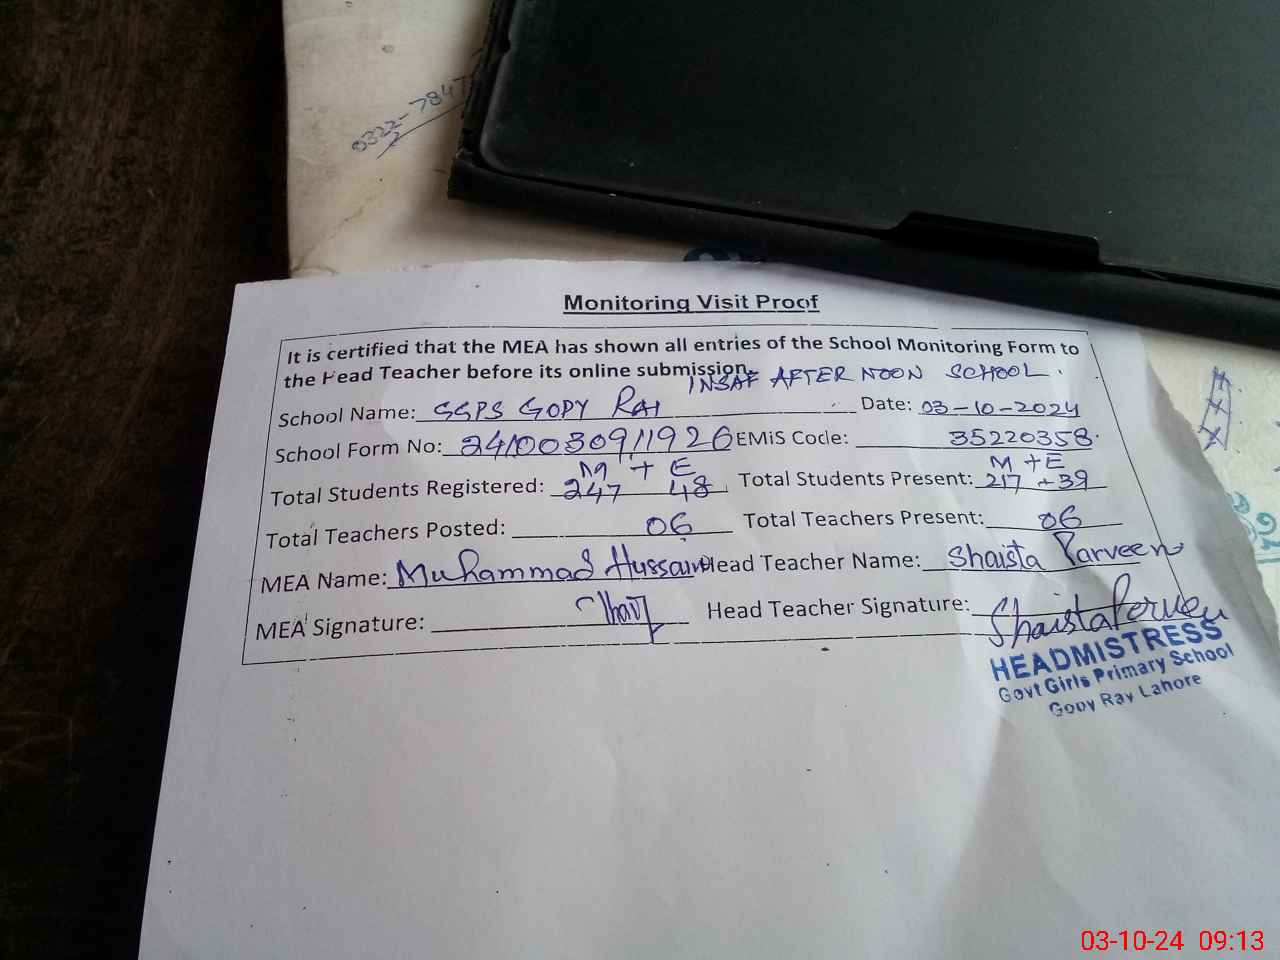 0322-7847
Monitoring Visit Proof
It is certified that the MEA has shown all entries of the School Monitoring Form to
the Head Teacher before its online submission.
INSAF AFTER NOON SCHOOL.
School Name: GGPS GOPY RAI Date: 03-10-2024
School Form No: 2410030911926 EMiS Code: 35220358
M + E M + E
Total Students Registered: 247 48 Total Students Present: 217 + 39
Total Teachers Posted: 06 Total Teachers Present: 06
MEA Name: Muhammad Hussain Head Teacher Name: Shaista Parveen
MEA Signature: Head Teacher Signature: Shaista Parveen
HEADMISTRESS
Govt Girls Primary School
Gopy Ray Lahore
03-10-24 09:13